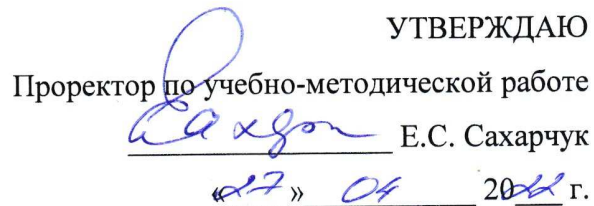 УТВЕРЖДАЮ
Проректор по учебно-методической работе
Е.С. Сахарчук
«27» 04 2022 г.